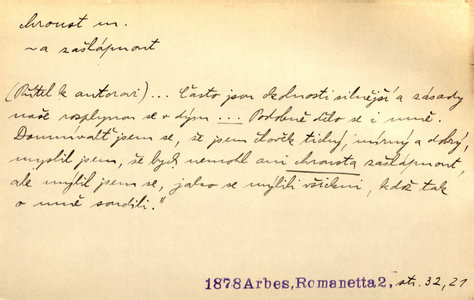 chroust m.
~a zašlápnout
(Přítel k autorovi)... Často jsou okolnosti silnější a zásady
naše rozplynou se v dým ... Podobně dělo se i mně.
Domníval jsem se, že jsem člověk tichý, mírný a dobrý,
myslil jsem, že bych nemohl ani chrousta zašlápnout,
ale mýlil jsem se, jako se mýlili všickni, kdož tak
o mně soudili."
1878 Arbes, Romanetta 2, str. 32, 21